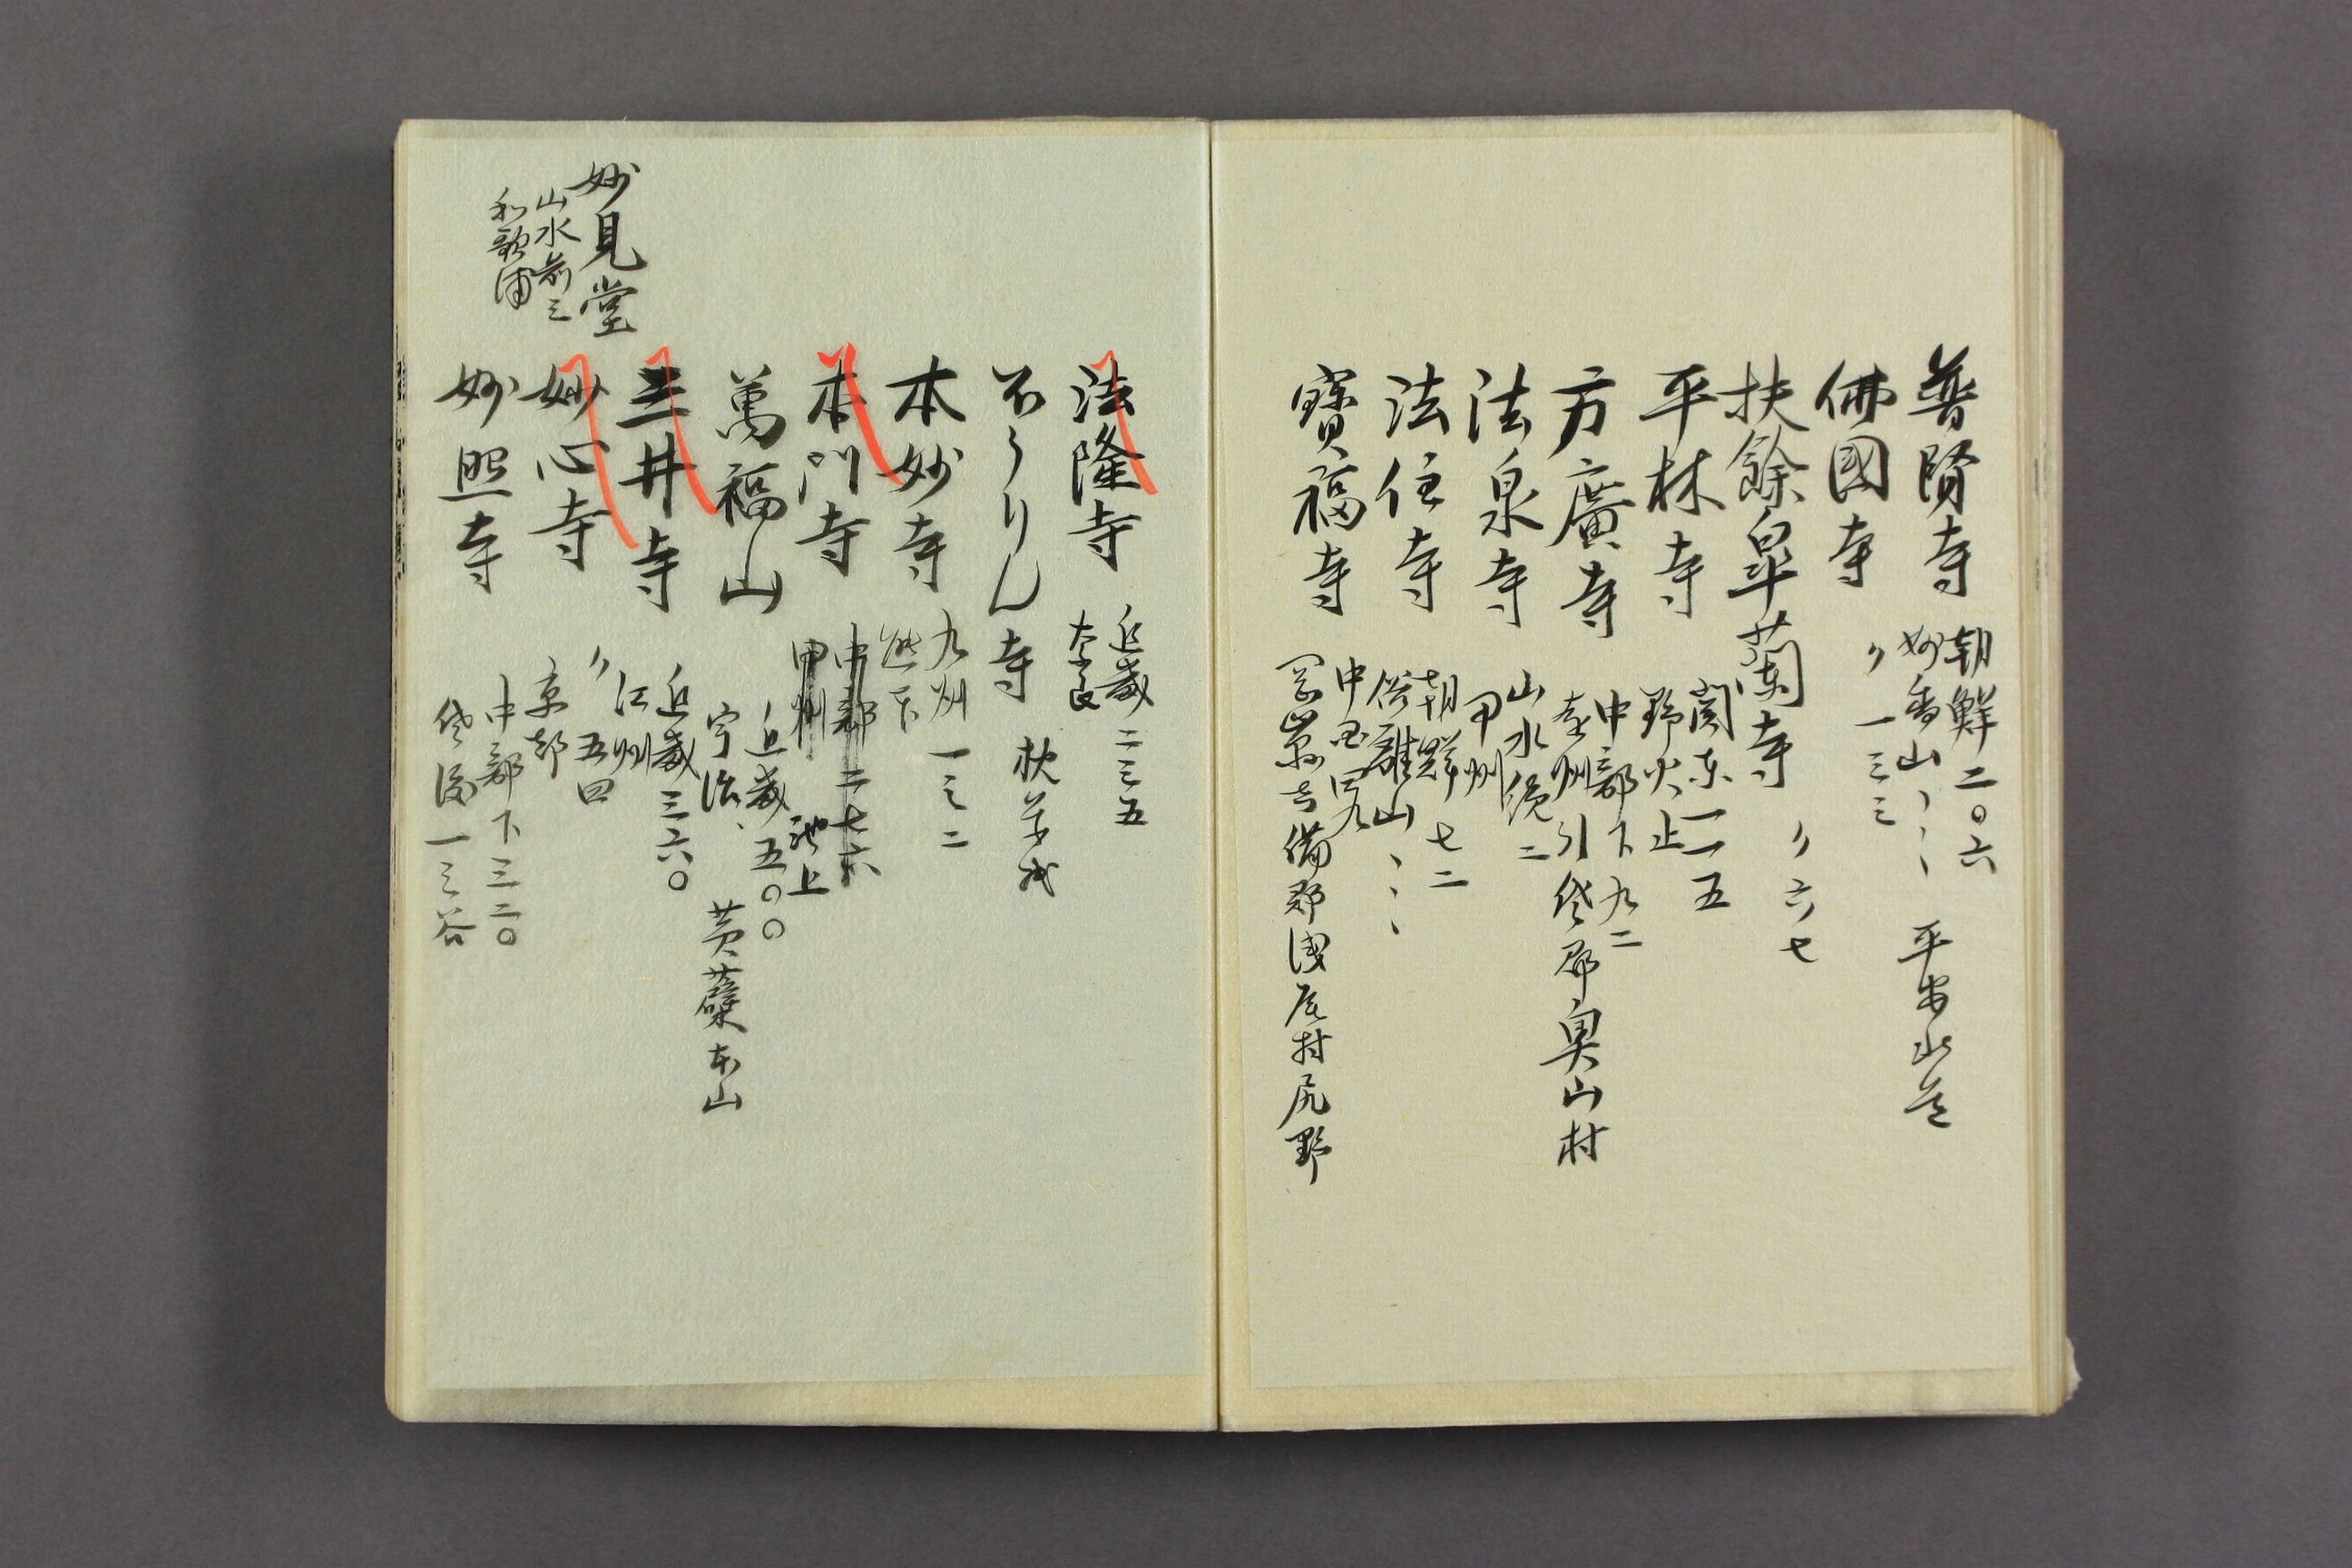 普賢寺
朝鮮二〇六
妙香山、、、 平安北道
佛國寺
〃 一三三
扶餘皐蘭寺
〃 六七
平林寺
関東一一五
野火止
方廣寺
中部下九二
遠州引佐郡奥山村
法泉寺
山水續二
甲州
法住寺
朝鮮七二
俗離山、、、
寶福寺
中国四九
岡山縣吉備郡浅尾村尻野
法隆寺
近畿二三五
奈良
ほうりん寺
秋萩戎
本妙寺
九州一三二
熊本
本門寺
中部二七六
甲州 池上
萬福山
近畿、五〇〇
宇治、 黄蘗本山
三井寺
近畿三六〇
江州
妙心寺
〃 五四
京都
妙見堂
山水前三
和歌浦
妙照寺
中部下三二〇
佐渡一ミ谷